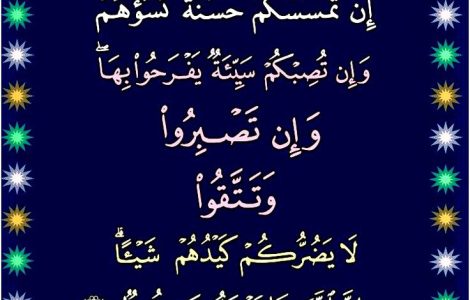 إِن تَمْسَسْكُمْ حَسَنَةٌ تَسُؤْهُمْ
وَإِن تُصِبْكُمْ سَيِّئَةٌ يَفْرَحُوا۟ بِهَا ۖ
وَإِن تَصْبِرُوا۟
وَتَتَّقُوا۟
لَا يَضُرُّكُمْ كَيْدُهُمْ شَيْـًٔا ۗ